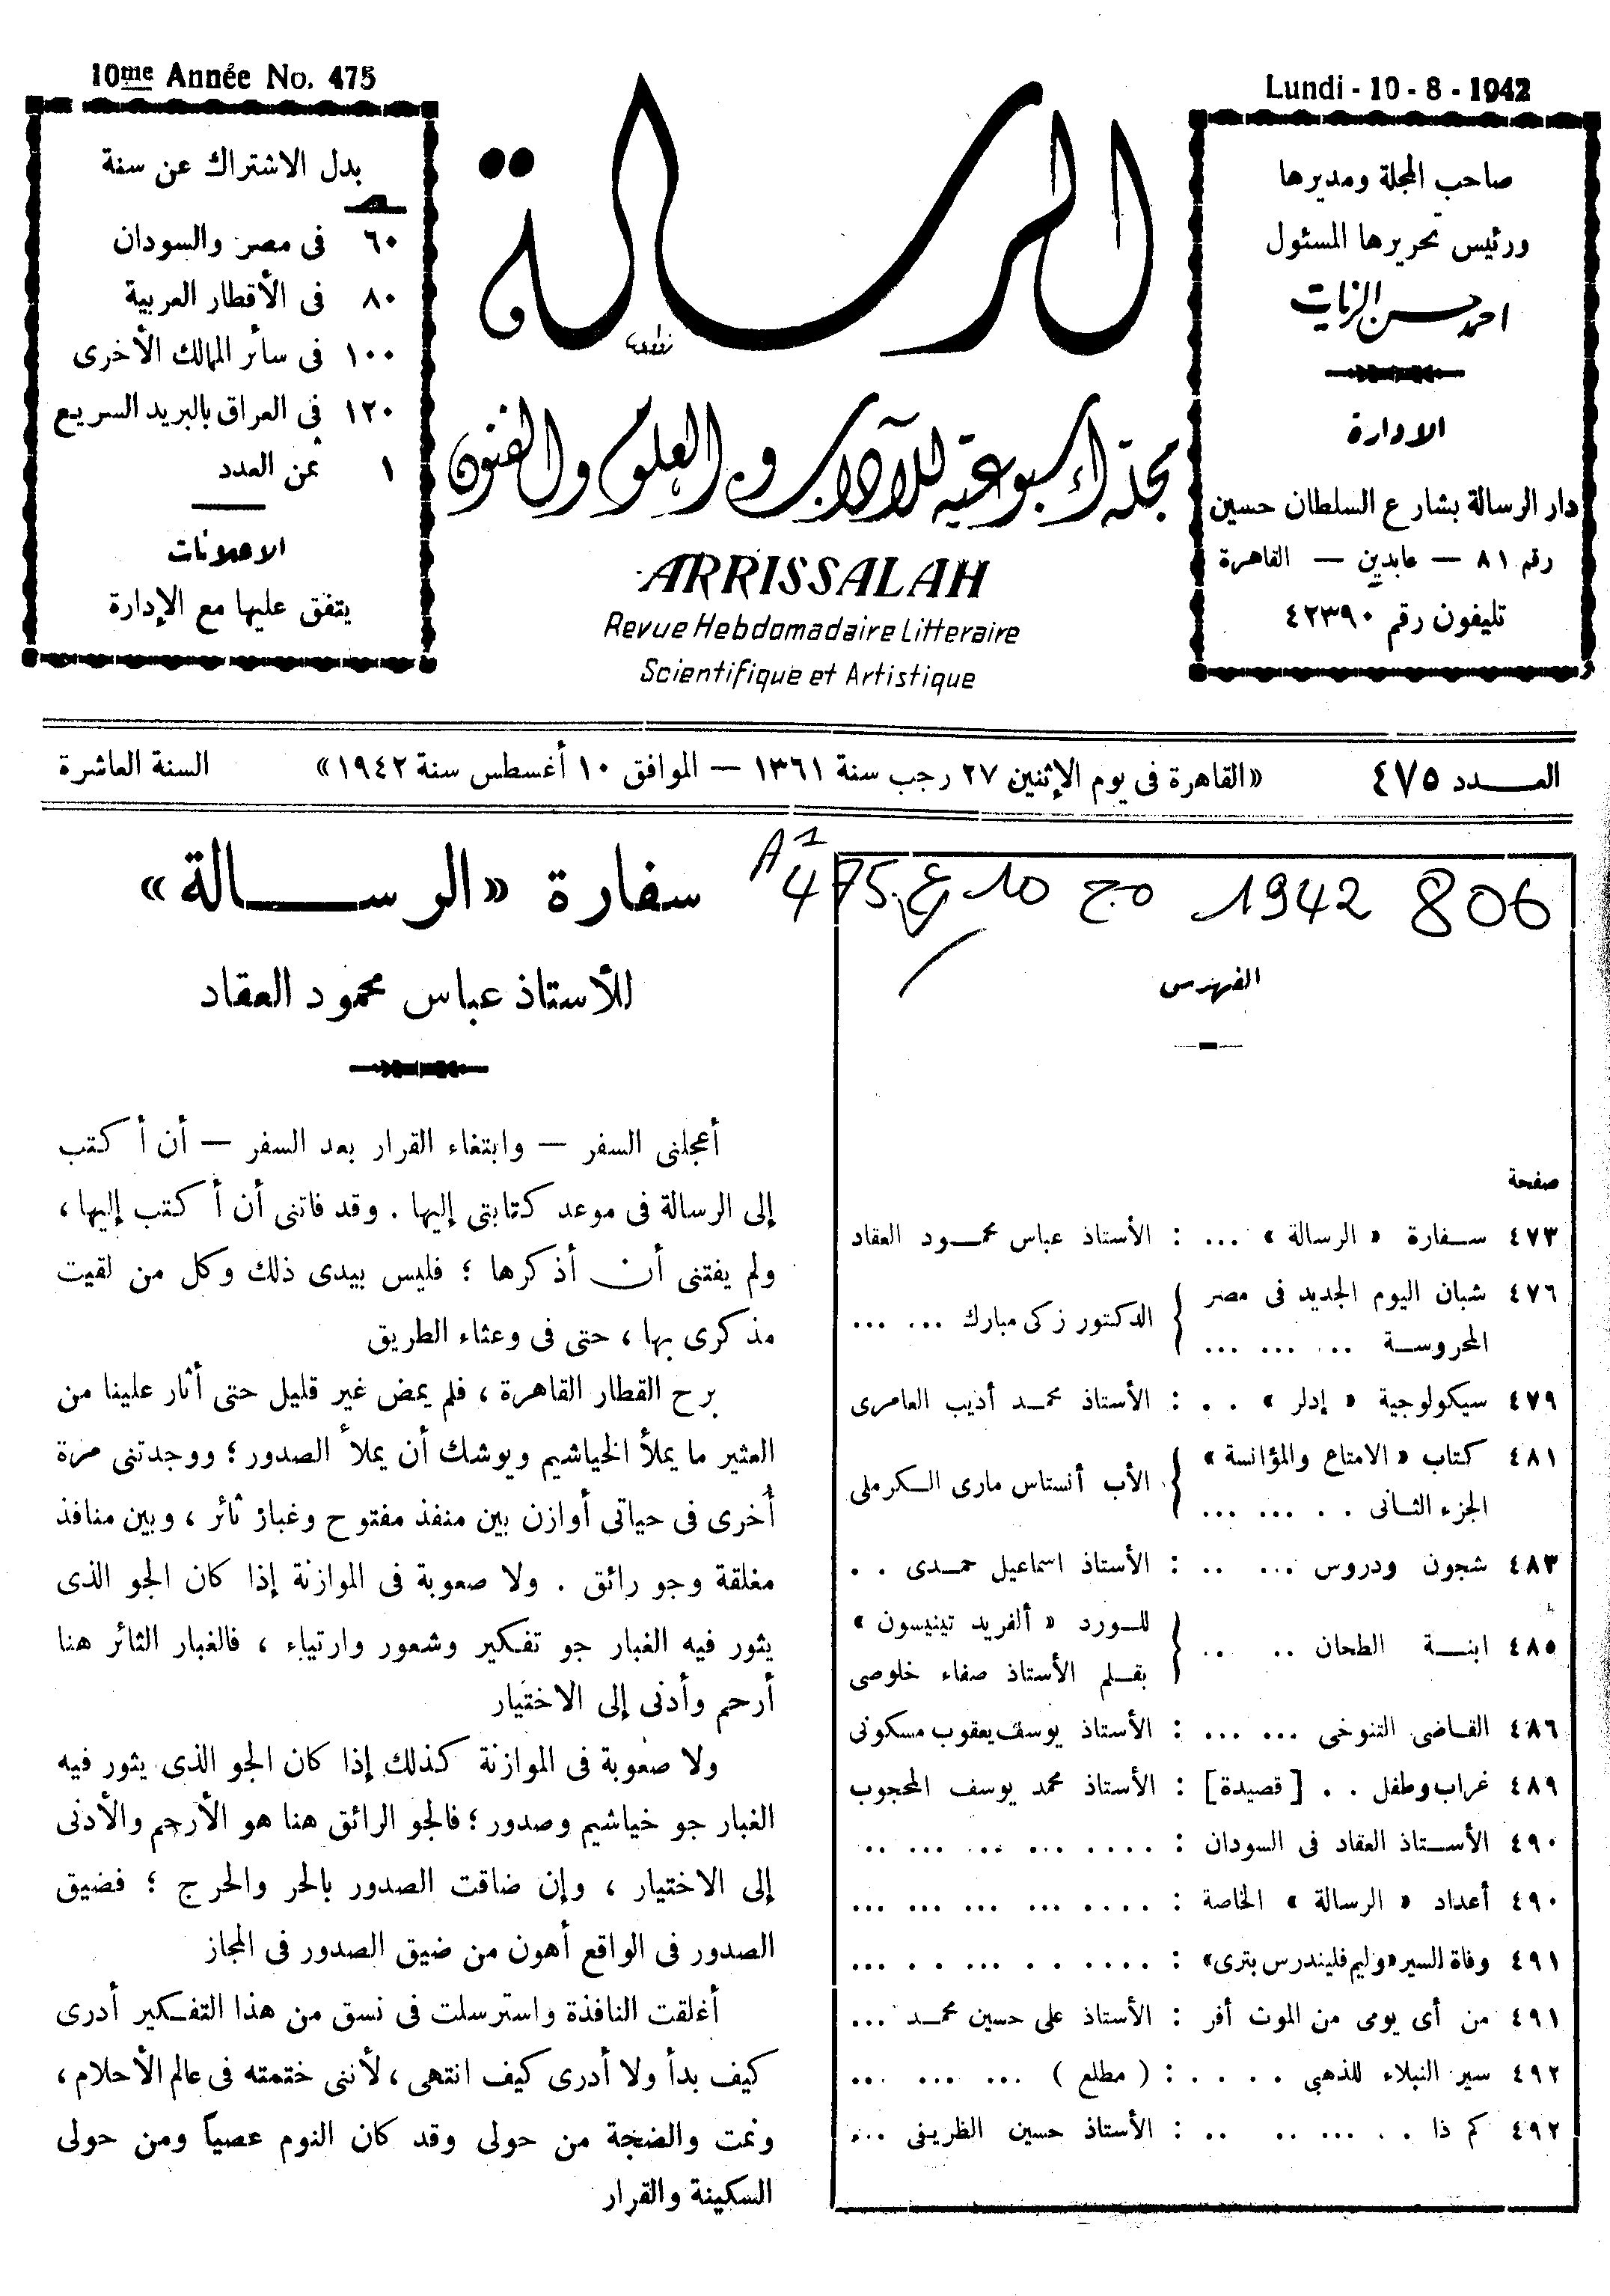 10me Année No. 475
Lundi - 10 - 8 - 1942
صاحب المجلة ومديرها
ورئيس تحريرها المسئول
احمد حسن الزيات
الادارة
دار الرسالة بشارع السلطان حسين
رقم ٨١ — عابدين — القاهرة
تليفون رقم ٤٢٣٩٠
الرسالة
مجلة أسبوعية للآداب والعلوم والفنون
ARRISSALAH
Revue Hebdomadaire Litteraire
Scientifique et Artistique
بدل الاشتراك عن سنة
٦٠ فى مصر والسودان
٨٠ فى الأقطار العربية
١٠٠ فى سائر الممالك الأخرى
١٢٠ فى العراق بالبريد السريع
١ ثمن العدد
الاعلانات
يتفق عليها مع الإدارة
العـــدد ٤٧٥ «القاهرة فى يوم الإثنين ٢٧ رجب سنة ١٣٦١ — الموافق ١٠ أغسطس سنة ١٩٤٢» السنة العاشرة
806 1942 10 475
الفهرس
صفحة
٤٧٣ سفارة « الرسالة » ... : الأستاذ عباس محمود العقاد
٤٧٦ شبان اليوم الجديد فى مصر
المحروسة ... ... ... } الدكتور زكى مبارك ... ...
٤٧٩ سيكولوجية « إدلر » . . : الأستاذ محمد أديب العامرى
٤٨١ كتاب « الامتاع والمؤانسة »
الجزء الثانى . . ... ... } الأب أنستاس مارى الكرملى
٤٨٣ شجون ودروس ... .. : الأستاذ اسماعيل حمدى . .
٤٨٥ ابنة الطحان .. .. } للورد « ألفريد تينيسون »
بقلم الأستاذ صفاء خلوصى
٤٨٦ القاضى التنوخى ... ... : الأستاذ يوسف يعقوب مسكونى
٤٨٩ غراب وطفل . . [قصيدة] : الأستاذ محمد يوسف المحجوب
٤٩٠ الأستاذ العقاد فى السودان : .... ... ... ... ..
٤٩٠ أعداد « الرسالة » الخاصة : .... ... ... ... ...
٤٩١ وفاة السير «وليم فليندرس بترى» : .... . . ... . . ...
٤٩١ من أى يومى من الموت أفر : الأستاذ على حسين محمد ...
٤٩٢ سير النبلاء للذهبى . . . . : ( مطلع ) ... ... ... ...
٤٩٢ كم ذا . . ... .. .. : الأستاذ حسين الظريفى ...
سفارة «الرســـالة»
للأستاذ عباس محمود العقاد
أعجلنى السفر — وابتغاء القرار بعد السفر — أن أكتب
إلى الرسالة فى موعد كتابتى إليها . وقد فاتنى أن أكتب إليها ،
ولم يفتنى أن أذكرها ؛ فليس بيدى ذلك وكل من لقيت
مذكرى بها ، حتى فى وعثاء الطريق
برح القطار القاهرة ، فلم يمض غير قليل حتى أثار علينا من
العثير ما يملأ الخياشيم ويوشك أن يملأ الصدور ؛ ووجدتنى مرة
أخرى فى حياتى أوازن بين منفذ مفتوح وغبار ثائر ، وبين منافذ
مغلقة وجو رائق . ولا صعوبة فى الموازنة إذا كان الجو الذى
يثور فيه الغبار جو تفكير وشعور وارتياء ، فالغبار الثائر هنا
أرحم وأدنى إلى الاختيار
ولا صعوبة فى الموازنة كذلك إذا كان الجو الذى يثور فيه
الغبار جو خياشيم وصدور ؛ فالجو الرائق هنا هو الأرحم والأدنى
إلى الاختيار ، وإن ضاقت الصدور بالحر والحرج ؛ فضيق
الصدور فى الواقع أهون من ضيق الصدور فى المجاز
أغلقت النافذة واسترسلت فى نسق من هذا التفكير أدرى
كيف بدأ ولا أدرى كيف انتهى ، لأننى ختمته فى عالم الأحلام ،
ونمت والضجة من حولى وقد كان النوم عصياً ومن حولى
السكينة والقرار